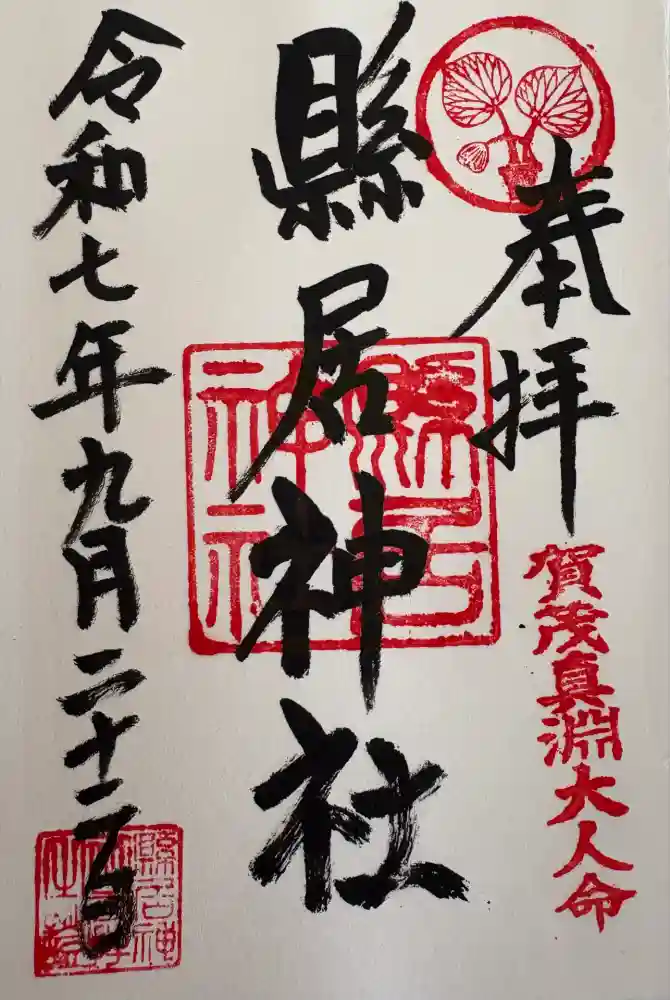 奉拝
賀茂真淵大人命
縣居神社
縣居
神社
令和七年九月二十二日